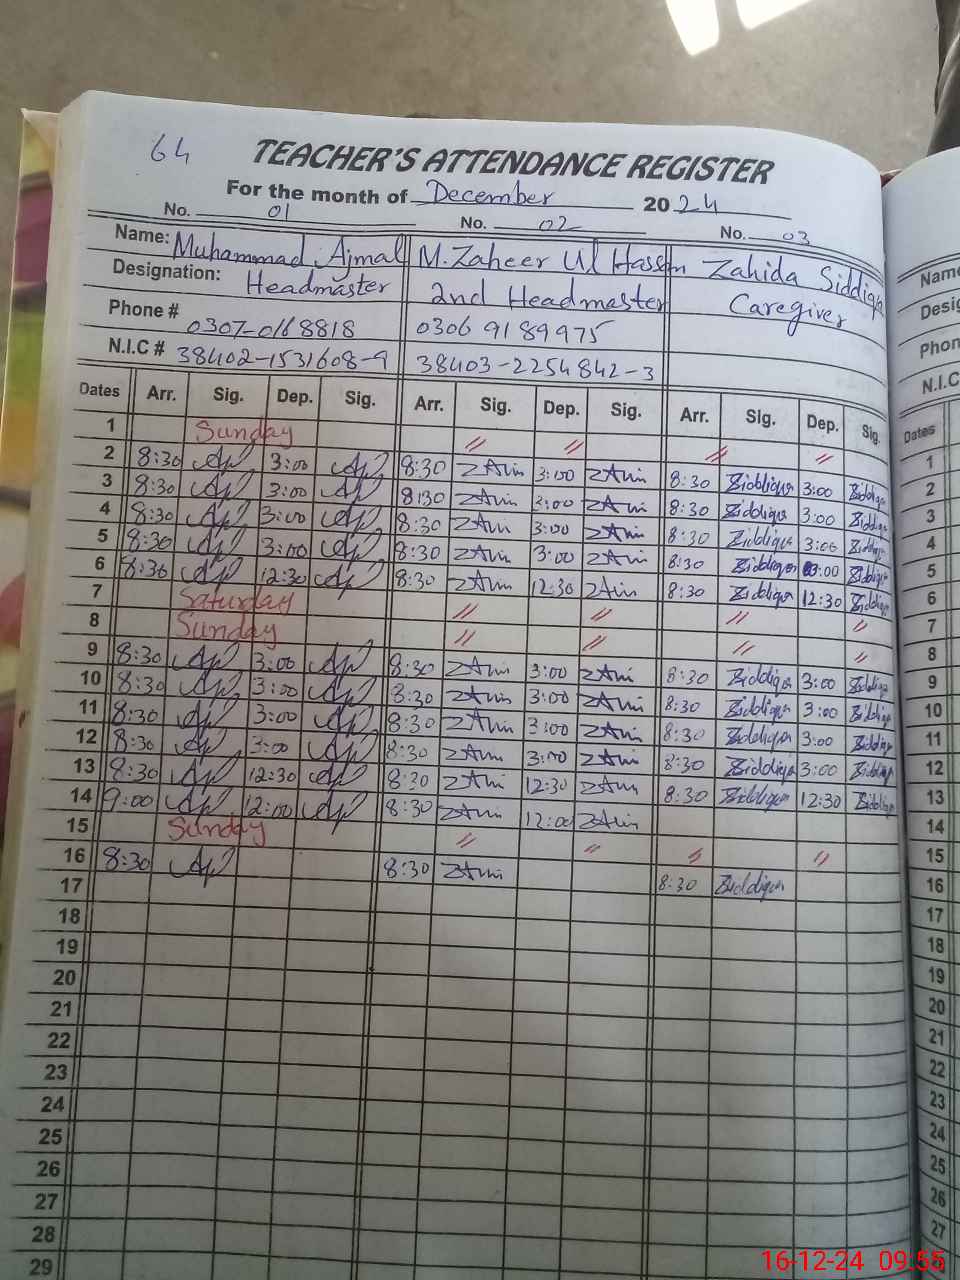 64
TEACHER'S ATTENDANCE REGISTER
For the month of December 2024
No. 01 No. 02 No. 03
Name: Muhammad Ajmal M. Zaheer Ul Hassan Zahida Siddiqa
Designation: Headmaster 2nd Headmaster Caregiver
Phone # 0307-0168818 0306 9189975
N.I.C # 38402-1531608-9 38403-2254842-3
Dates Arr. Sig. Dep. Sig. Arr. Sig. Dep. Sig. Arr. Sig. Dep. Sig.
1 Sunday // // // //
2 8:30 3:00 8:30 3:00 8:30 Siddiqa 3:00 Siddiqa
3 8:30 3:00 8:30 3:00 8:30 Siddiqa 3:00 Siddiqa
4 8:30 3:00 8:30 3:00 8:30 Siddiqa 3:00 Siddiqa
5 8:30 3:00 8:30 3:00 8:30 Siddiqa 3:00 Siddiqa
6 8:30 12:30 8:30 12:30 8:30 Siddiqa 12:30 Siddiqa
7 Saturday // // // //
8 Sunday // // // //
9 8:30 3:00 8:30 3:00 8:30 Siddiqa 3:00 Siddiqa
10 8:30 3:00 8:30 3:00 8:30 Siddiqa 3:00 Siddiqa
11 8:30 3:00 8:30 3:00 8:30 Siddiqa 3:00 Siddiqa
12 8:30 3:00 8:30 3:00 8:30 Siddiqa 3:00 Siddiqa
13 8:30 12:30 8:30 12:30 8:30 Siddiqa 12:30 Siddiqa
14 9:00 12:00 8:30 12:00
15 Sunday // // // //
16 8:30 8:30 8:30 Siddiqa
17
18
19
20
21
22
23
24
25
26
27
28
29
Name
Desig
Phon
N.I.C
Dates
1
2
3
4
5
6
7
8
9
10
11
12
13
14
15
16
17
18
19
20
21
22
23
24
25
26
27
16-12-24 09:55